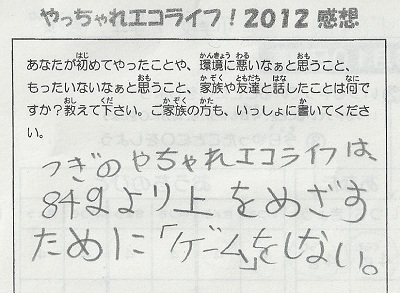 やっちゃれエコライフ！2012 感想
あなたが初めてやったことや、環境に悪いなぁと思うこと、
もったいないなぁと思うこと、家族や友達と話したことは何で
すか？教えて下さい。ご家族の方も、いっしょに書いてくださ
い。
つぎのやちゃれエコライフは、
842より上をめざす
ために「ゲーム」をしない。